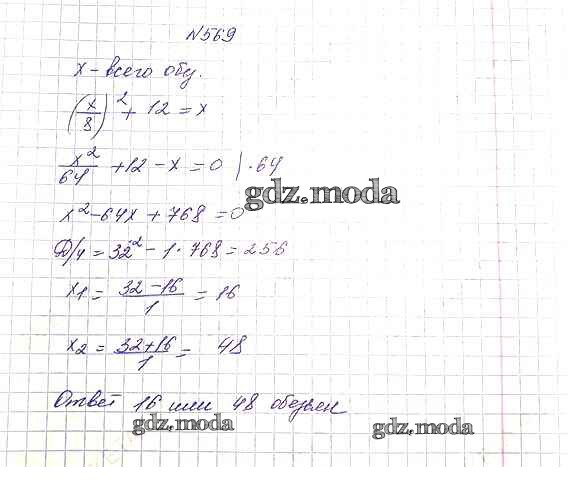 №569
x - всего обу.
(x/8)² + 12 = x
x²/64 + 12 - x = 0 | · 64
gdz.moda
x² - 64x + 768 = 0
D/4 = 32² - 1 · 768 = 256
x1 = (32 - 16)/1 = 16
x2 = (32 + 16)/1 = 48
Ответ 16 или 48 обезьян
gdz.moda gdz.moda